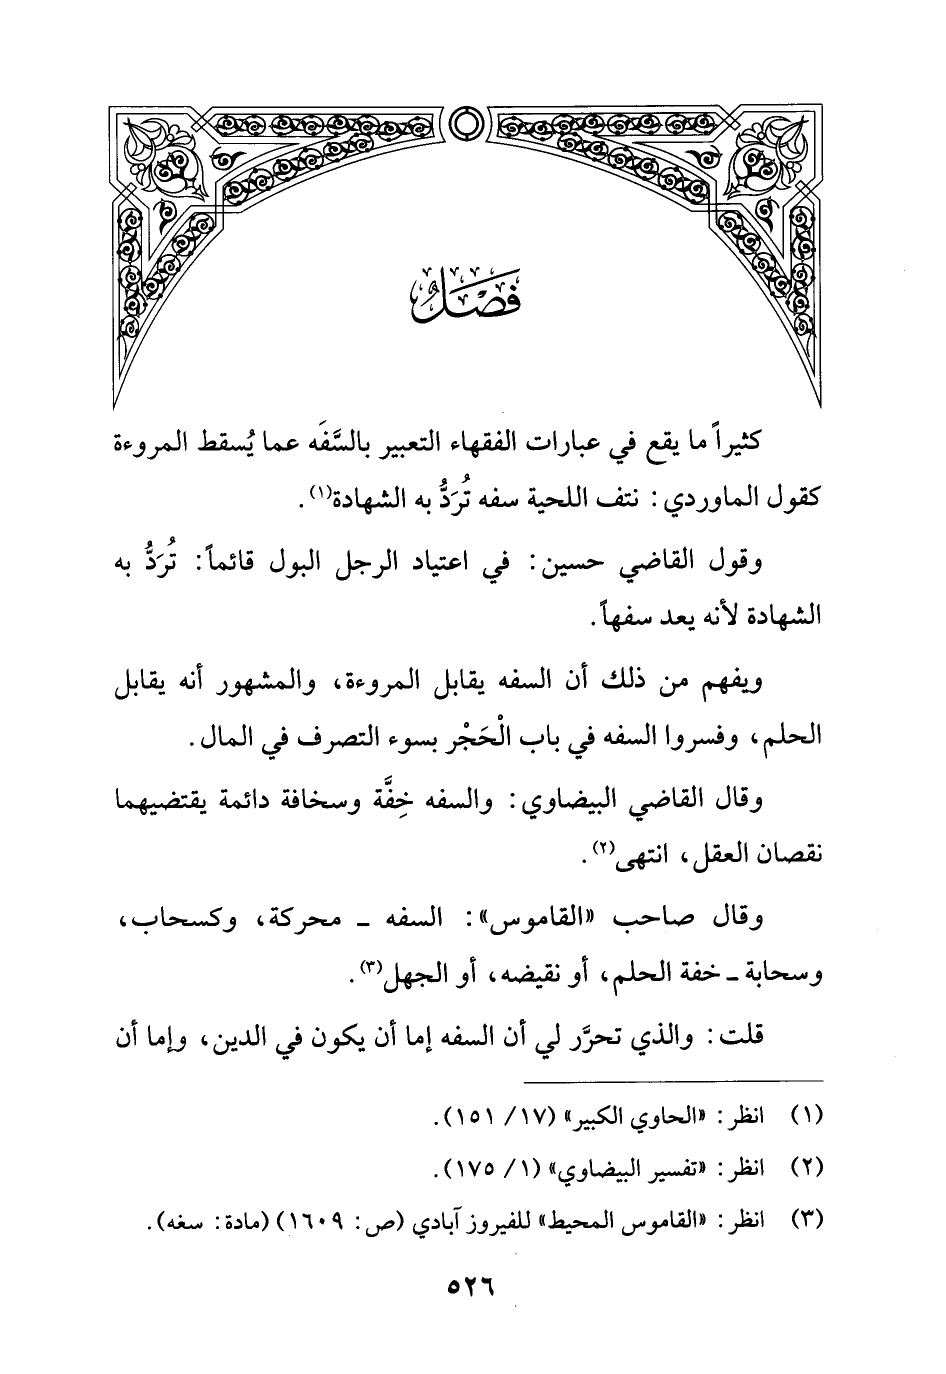 فَصْلٌ
كثيراً ما يقع في عبارات الفقهاء التعبير بالسَّفَه عما يُسقط المروءة
كقول الماوردي: نتف اللحية سفه تُرَدُّ به الشهادة(١).
وقول القاضي حسين: في اعتياد الرجل البول قائماً: تُرَدُّ به
الشهادة لأنه يعد سفهاً.
ويفهم من ذلك أن السفه يقابل المروءة، والمشهور أنه يقابل
الحلم، وفسروا السفه في باب الْحَجْر بسوء التصرف في المال.
وقال القاضي البيضاوي: والسفه خِفَّة وسخافة دائمة يقتضيهما
نقصان العقل، انتهى(٢).
وقال صاحب «القاموس»: السفه ـ محركة، وكسحاب،
وسحابة ـ خفة الحلم، أو نقيضه، أو الجهل(٣).
قلت: والذي تحرَّر لي أن السفه إما أن يكون في الدين، وإما أن
(١) انظر: «الحاوي الكبير» (١٧/ ١٥١).
(٢) انظر: «تفسير البيضاوي» (١/ ١٧٥).
(٣) انظر: «القاموس المحيط» للفيروز آبادي (ص: ١٦٠٩) (مادة: سغه).
٥٢٦